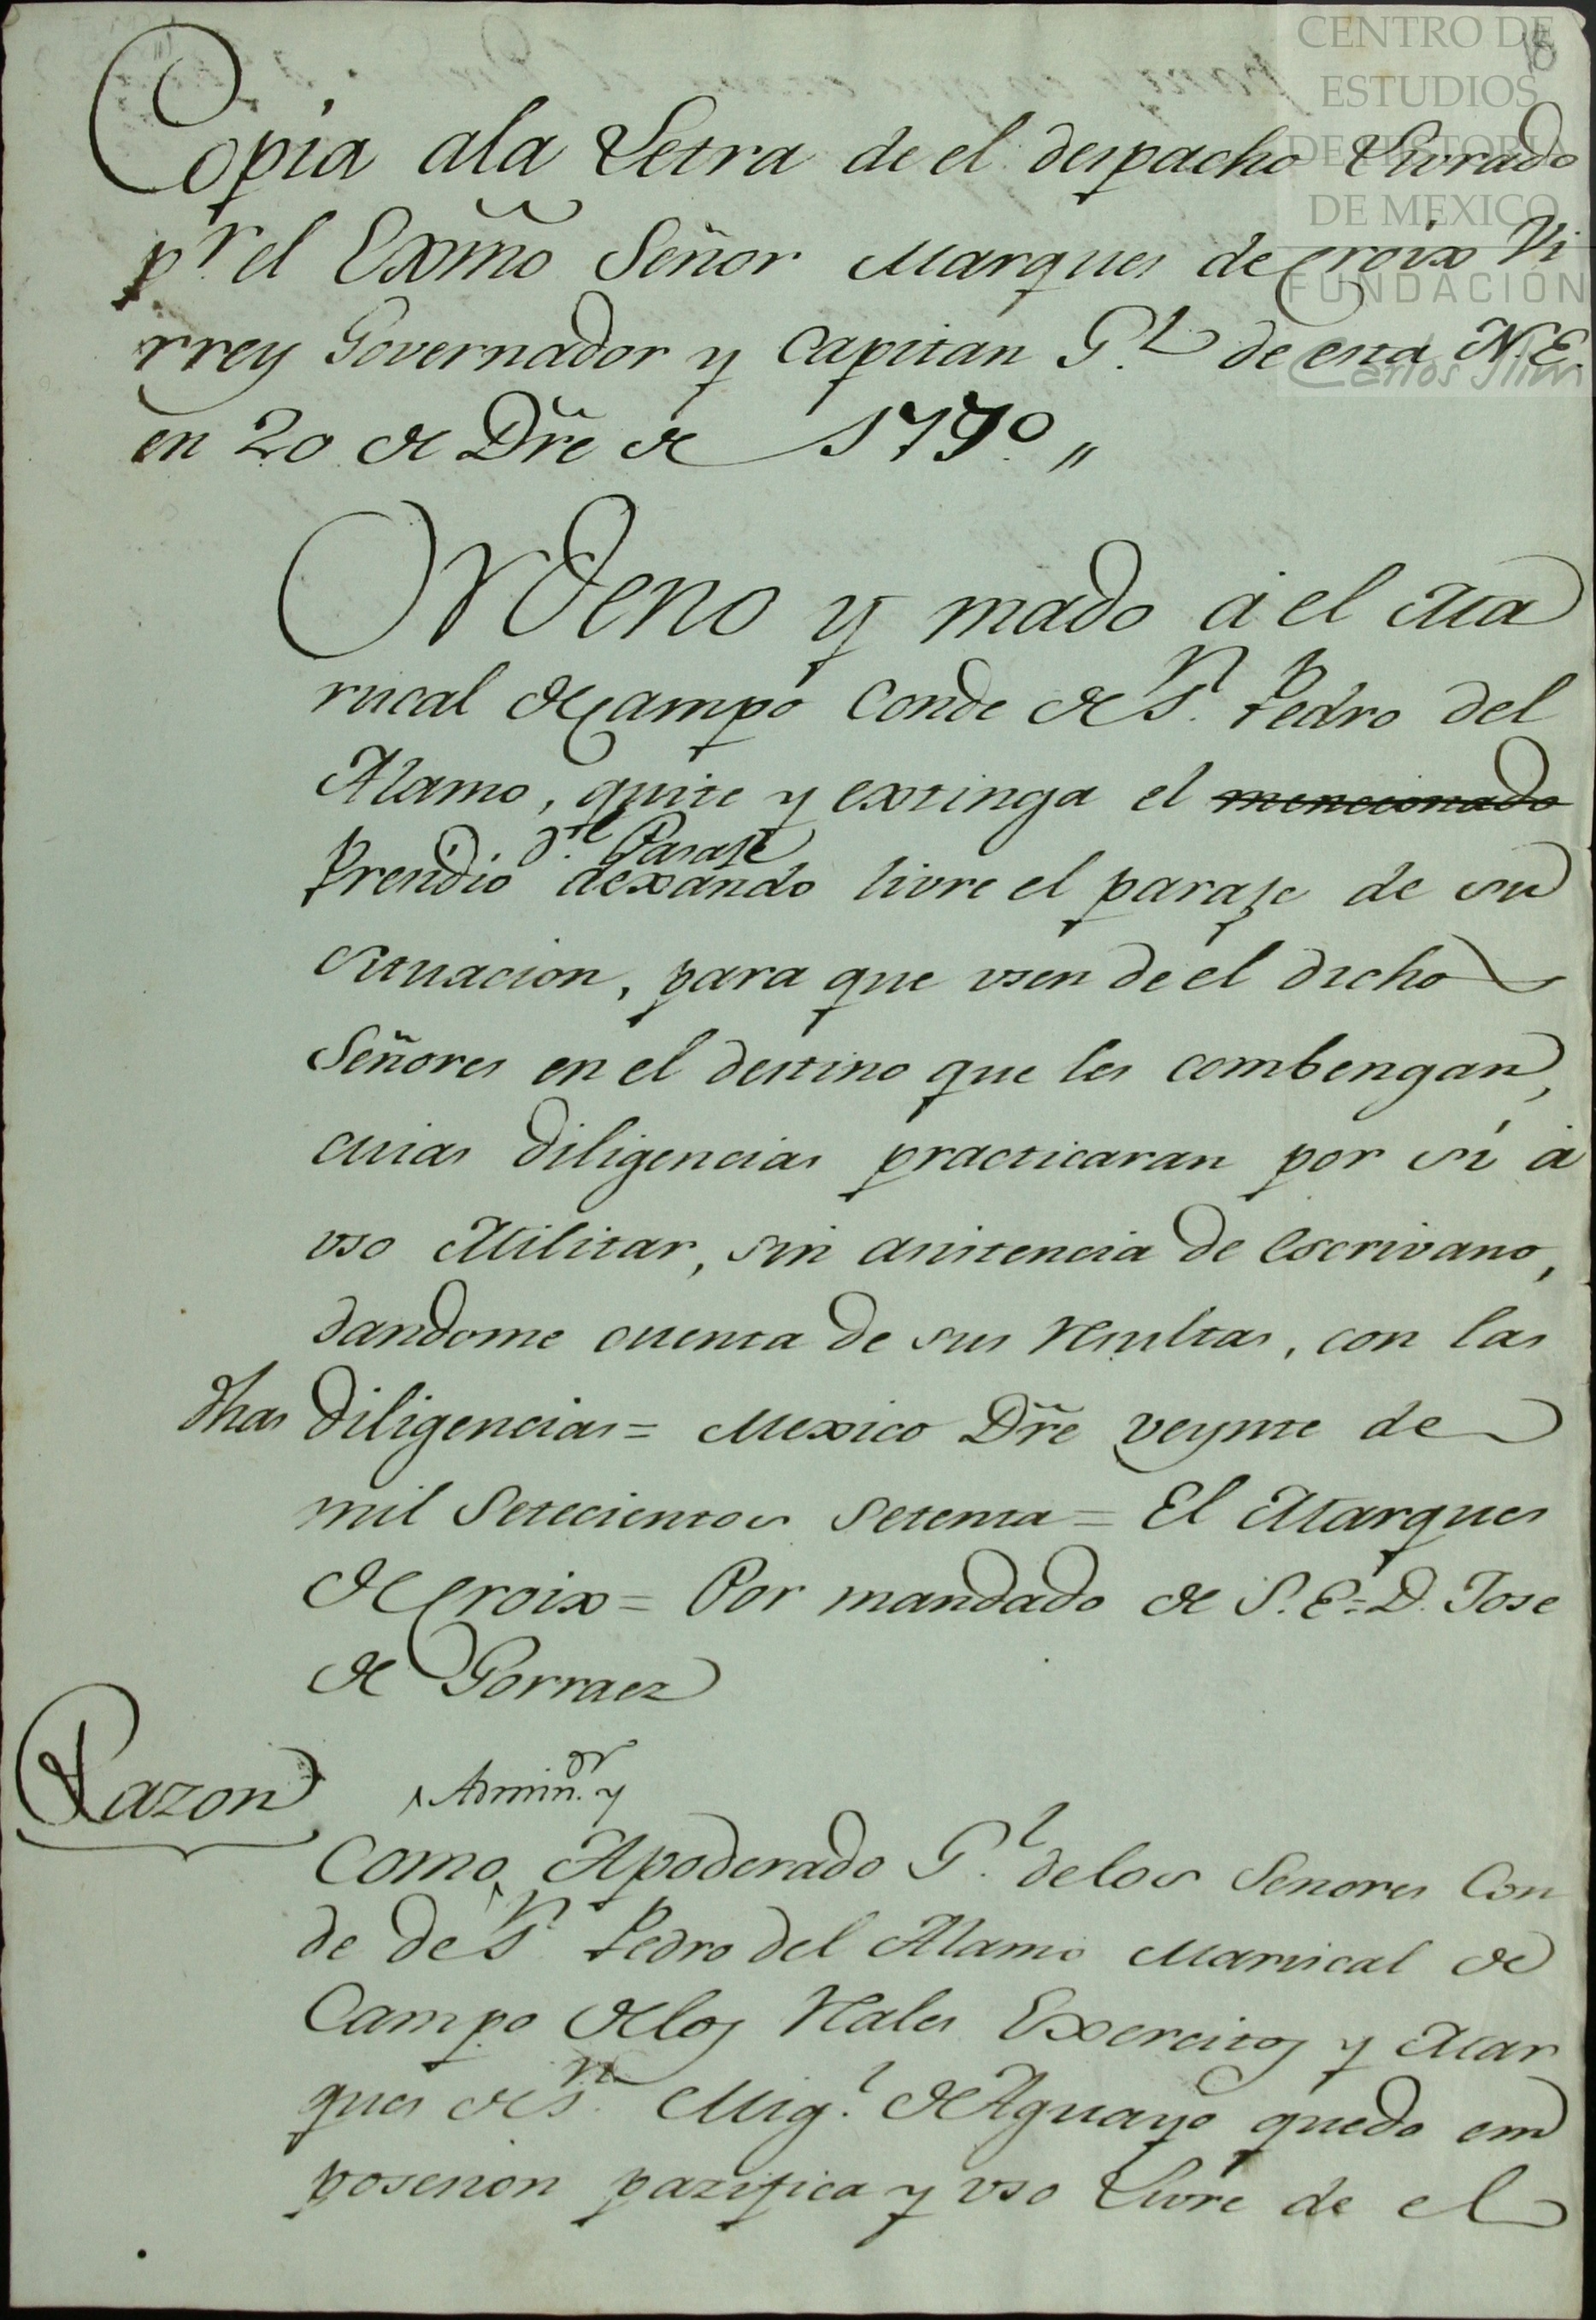 CENTRO DE
ESTUDIOS
DE HISTORIA
DE MEXICO
FUNDACIÓN
Carlos Slim
Copia ala Letra de el despacho Livrado
pr. el Exmõ Señor Marques de Croix Vi
rrey Governador y Capitan G.l de esta N.E.
en 20 de Dre de 1770,,
Ordeno y mado á el Ma
riscal de Campo Conde de S.n Pedro del
Alamo, quite y extinga el mencionado
d.el Pasaje
Presidio dexando livre el paraje de su
situacion, para que usen de el dicho
Señores en el destino que les combengan,
cuias diligencias practicaran por sí á
uso Militar, sin asistencia de Escrivano,
dandome cuenta de sus resultas, con las
dhas diligencias = Mexico Dre veynte de
mil Setecientos setenta = El Marques
de Croix = Por mandado de S. E. = D. Jose
de Gorraez
Razon
Admin.or y
Como Apoderado G.l de los Senores Con
de de S.n Pedro del Alamo Mariscal de
Campo de los Rales Exercitos y Mar
ques de S.n Mig.l de Aguayo quedo em
posesion pazifica y uso Livre de el